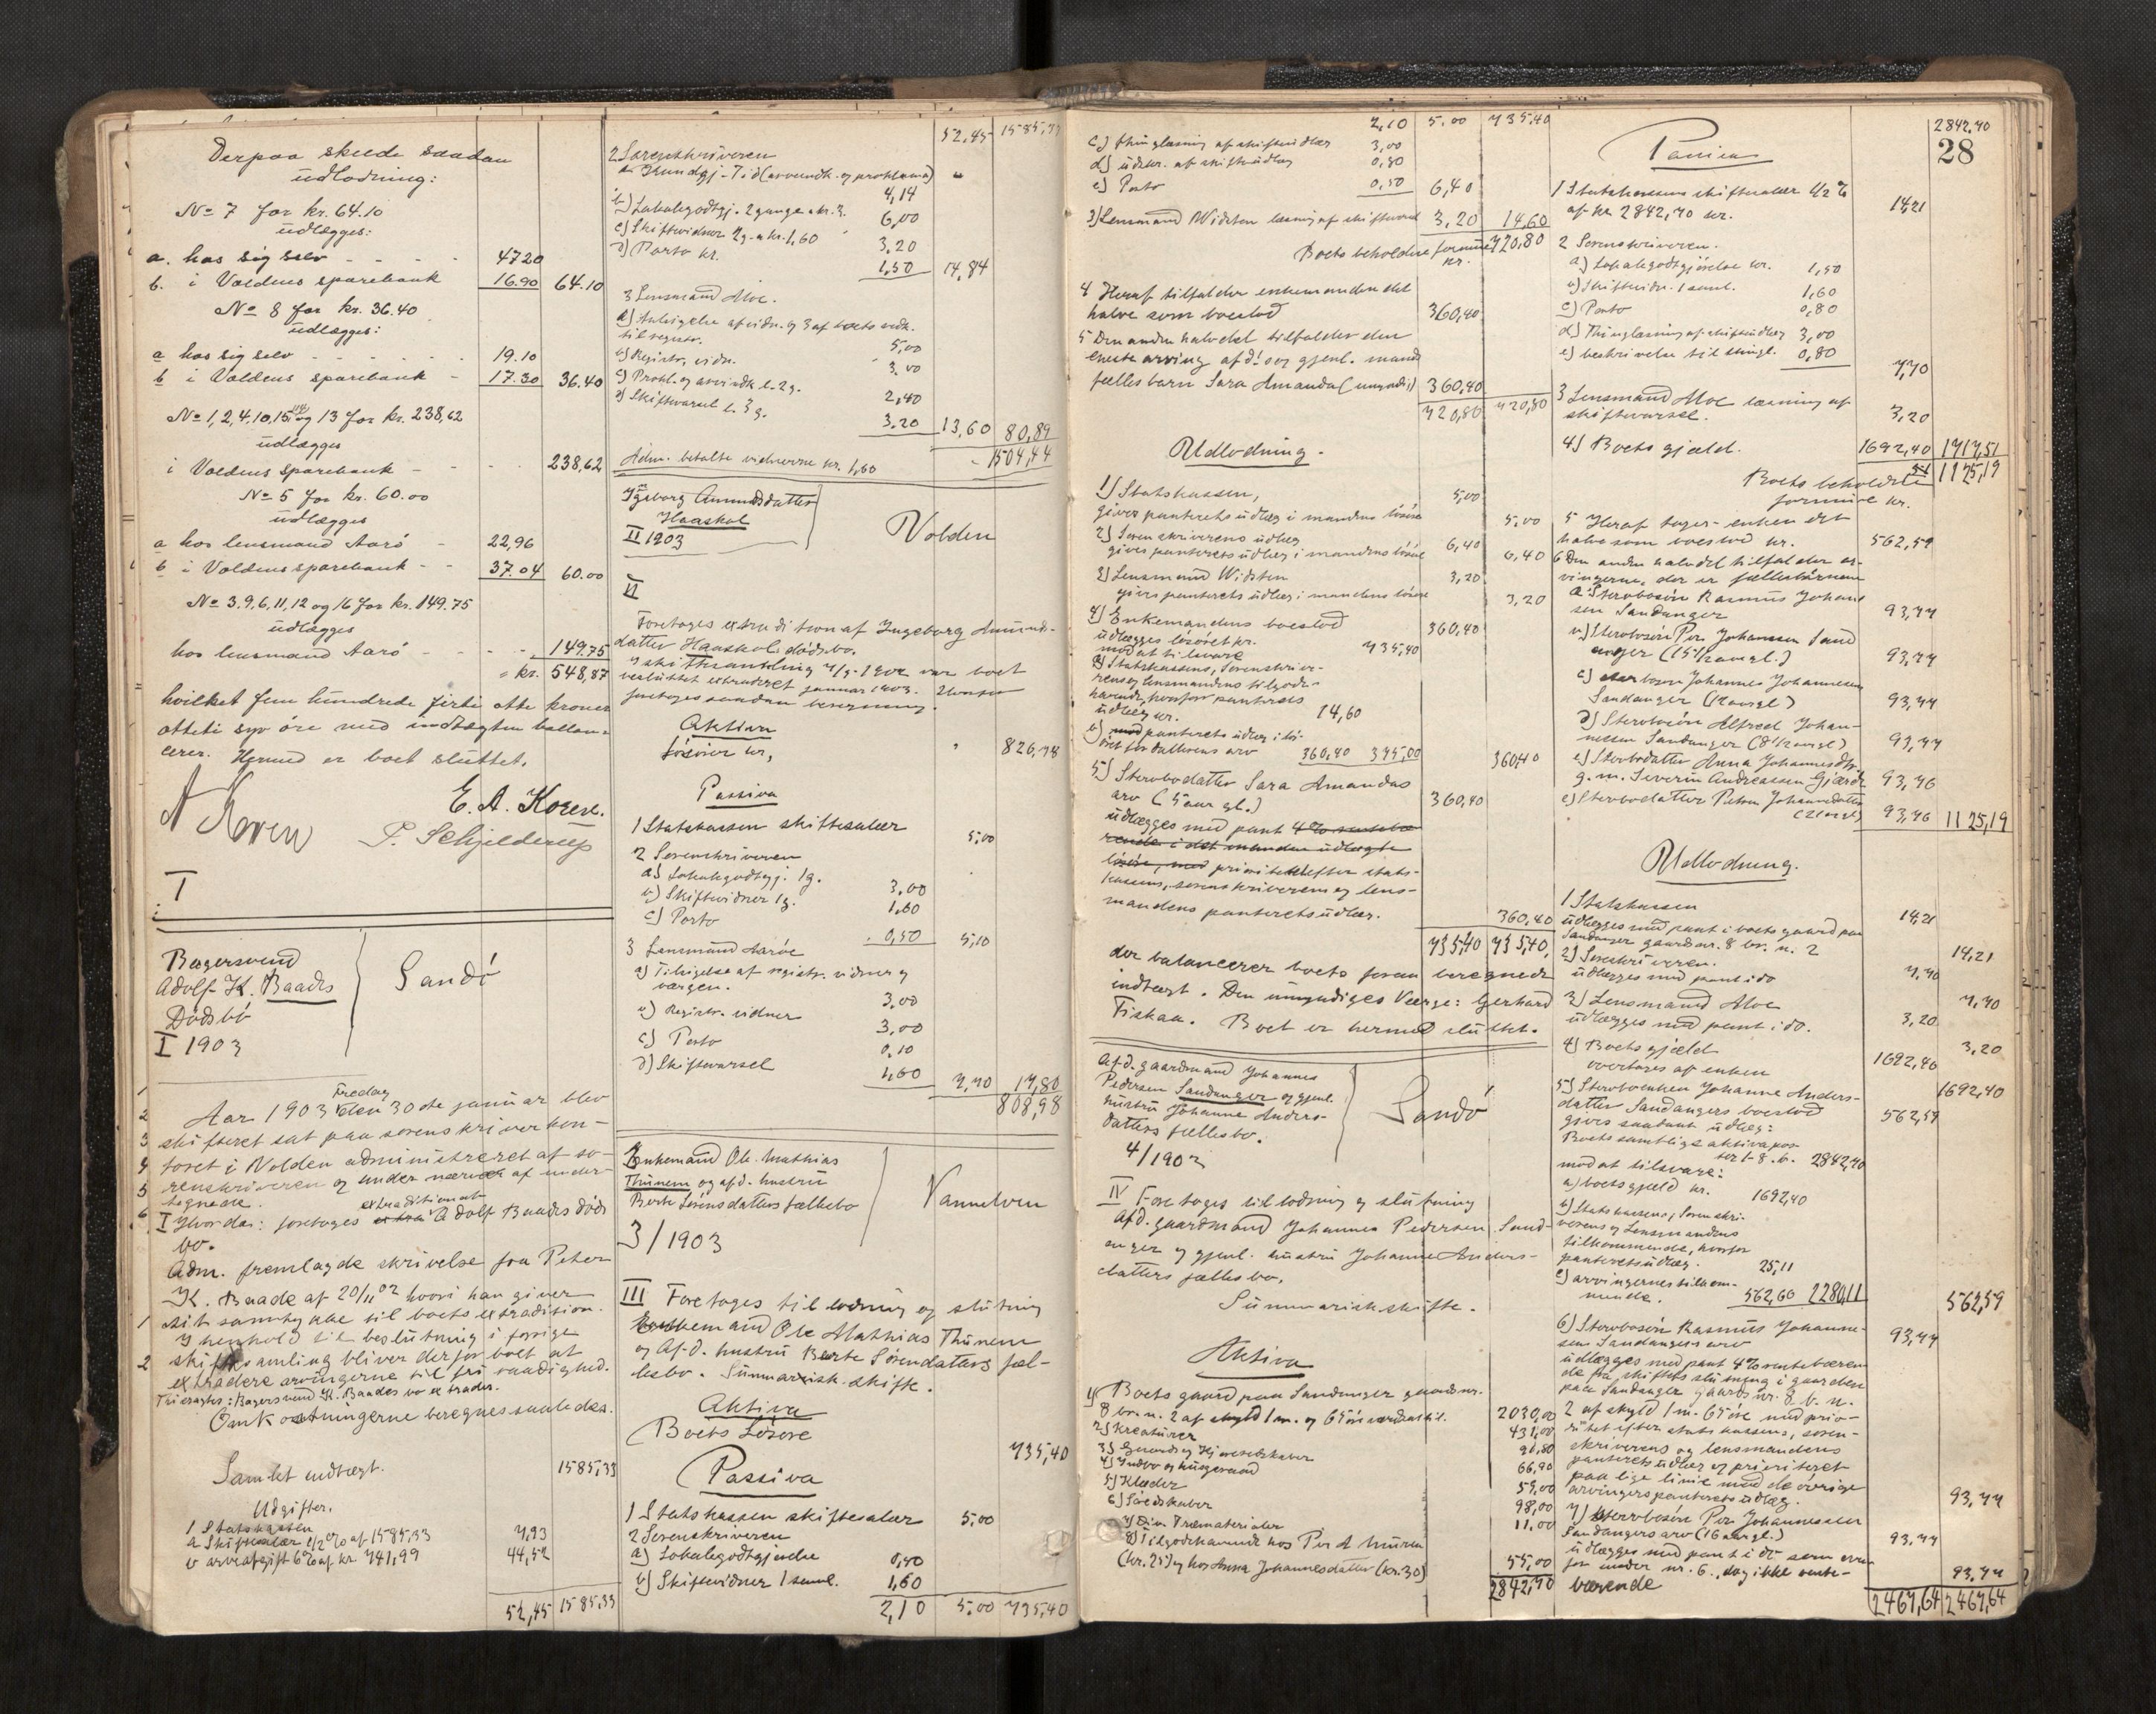 Derpaa skede saadan
udlodning:
No 7 for kr. 64.10
udlægges:
a. hos sig selv - - - - 47 20
b. i Voldens sparebank 16.90 64.10
No 8 for kr. 36.40
udlægges:
a hos sig selv - - - - - - 19.10
b i Voldens sparebank - 17.30 36.40
No 1, 2, 4, 10, 15 og 13 for kr. 238,62
udlægges
i Voldens sparebank - - - - 238,62
No 5 for kr. 60.00
udlægges
a hos lensmand Aarö - 22,96
b i Voldens sparebank - - 37.04 60.00
No 3, 9, 6, 11, 12 og 16 for kr. 149.75
udlægges
hos lensmand Aarö - - - - 149.75
= kr. 548,87
hvilket fem hundrede firti otte kroner
otteti syv öre med indtægten ballan-
cerer. Hermed er boet sluttet.
E. A. Koren.
N Koren P. Schjelderup
I
Bagersvend
Adolf K. Baades
Dödsbö
I 1903
Sandö
Fredag
Aar 1903 den 30de januar blev
skifteret sat paa sorenskriverkon-
toret i Volden administreret af so-
renskriveren og under nærvær af under-
tegnede.
extradition af
I Hvorda: foretoges Adolf Baades döds
bo.
Adm. fremlagde skrivelse fra Peter
K. Baade af 20/11 02 hvori han giver
sit samtykke til boets extradition.
I henhold til beslutning i forrige
skiftesamling bliver derfor boet at
extradere arvingerne til fri raadighed.
Thi eragtes: Bagersvend K. Baades bo extraderes.
Omkostningerne beregnes saaledes.
Samlet indtægt. 1585,33
Udgifter.
1 Statskassen
a Skiftesalær 1/2 % af 1585,33 7,93
b arveafgift 6% af kr 741,99 44,52
52,45 1585,33
52,45 1585,33
2 Sorenskriveren
4,14
b) Lokalegodtgj. 2 gange a kr. 3. 6,00
c) Skiftevidner 2 g. a kr. 1,60 3,20
d) Porto kr. 1,50 14,84
3 Lensmand Aloe.
a) Tilsigelse af vidn. og 3 af boets vedk.
til registr. 5,00
b) Registr. vidn. 3,00
c) Prokl. og arveindk. l. 2 g. 2,40
d) Skiftevarsel l. 3 g. 3,20 13,60 80,89
Adm. betalte vidnerne kr. 1,60 - 1504,44
Ingeborg Amundsdatter
Haaskol
II 1903
Volden
II
Foretoges extradition af Ingeborg Amunds-
datter Haaskols dödsbo.
I skiftesamling 4/9-1902 var boet
besluttet extraderet januar 1903. Hvorfor
foretoges saadan beregning.
Aktiva
Lösöre kr, 826,78
Passiva
1 Statskassen skiftesalær 5,00
2 Sorenskriveren
a) Lokalegodtgj. 1 g. 3,00
b) Skiftevidner 1 g. 1,60
c) Porto 0,50 5,10
3 Lensmand Aaröe
a) Tilsigelse af registr. vidner og
værgen. 3,00
b) Registr. vidner 3,00
c) Porto 0,10
d) Skiftevarsel 1,60 7,70 17,80
808,98
Enkemand Ole Mathias
Thunem og afd. hustru
Berte Sörensdatters fællesbo
3/1903
Vannelven
III Foretoges til lodning og slutning
Enkemand Ole Mathias Thunem
og Afd. hustru Berte Sörendatters fæl-
lesbo. Summarisk skifte.
Aktiva
Boets Lösöre 735,40
Passiva
1 Statskassen skiftesalær 5,00
2 Sorenskriveren
a) Lokalegodtgjörelse 0,50
b) Skiftevidner 1 saml. 1,60
2,10 5,00 735,40
2,10 5,00 735,40
c) thinglæsning af skifteudlæg 3,00
d) udskr. af skifteudlæg 0,80
e) Porto 0,50 6,40
3) Lensmand Widsten læsning af skiftevarsel 3,20 14,60
Boets beholdne formue kr. 720,80
4 Heraf tilfalder enkemanden det
halve som boeslod 360,40
5 Den anden halvdel tilfalder den
eneste arving afd. og gjenl. mands
fælles barn Sara Amanda (umyndig) 360,40
720,80 720,80
Udlodning.
1) Statskassen, 5,00
gives panteretsudlæg i mandens lösöre 5,00
2) Sorenskriverens udlæg 6,40
gives panteretsudlæg i mandens lösöre 6,40
3) Lensmand Widsten 3,20
gives panteretsudlæg i mandens lösöre 3,20
4) Enkemandens boeslod 360,40
udlægges lösöret kr. 735,40
mod at tilsvare
a) Statskassens, Sorenskrive-
rens og lensmandens tilgode-
havende, hvorfor panterets
udlæg kr. 14,60
b) mod panterets udlæg i lös-
öret for datterens arv 360,40 375,00 360,40
5) Sterbodatter Sara Amandas
arv (5 aar gl.) 360,40
udlægges med pant 4% rentebæ-
rende i det manden udlagte
lösöre, med prioritet efter stats-
kassens, sorenskriverens og lens-
mandens panteretsudlæg. 360,40
735,40 735,40,
der balancerer boets foran beregnede
indtægt. Den umyndiges Værge: Gerhard
Fiskaa. Boet er hermed sluttet.
Afd. gaardmand Johannes
Pedersen Sandanger og gjenl.
hustru Johanne Anders-
datters fællesbo.
4/1903
Sandö
IV Foretoges til lodning og slutning
Afd. gaardmand Johannes Pedersen Sand-
anger og gjenl. hustru Johanne Anders-
datters fællesbo.
Summarisk skifte.
Aktiva
1) Boets gaard paa Sandanger gaardsnr.
8 br. n. 2 af skyld 1 m. og 65 öre værdsat til. 2030,00
2) Kreaturer 431,00
3) Gaards og Kjöreredskaber 90,80
4) Indbo og husgeraad 66,90
5) Klæder 59,00
6) Söredskaber 98,00
7) Div. Træmaterialer 11,00
8) Tilgodehavende hos Per A Muren
(kr. 25) og hos Anna Johannesdatter (kr. 30) 55,00
2842,70
2842,70
28
Passiva
1 Statskassens skiftesalær 1/2 %
af kr 2842,70 kr. 14,21
2 Sorenskriveren.
a) Lokalegodtgjörelse kr. 1,50
b) Skiftevidn. 1 saml. 1,60
c) Porto 0,80
d) Thinglæsning af skifteudlæg 3,00
e) beskrivelse til thingl. 0,80 7,70
3 Lensmand Aloe læsning af
skiftevarsel. 3,20
4) Boets gjæld. 1692,40 1717,51
Boets beholdne
formue kr. 1125,19
5 Heraf tager enken det
halve som boeslod kr. 562,59
6 Den anden halvdel tilfalder ar-
vingerne, der er fællesbörnene
a) Sterbosön Rasmus Johanne-
sen Sandanger 93,77
b) Sterbosön Per Johannesen Sand
anger (15 1/2 aar gl.) 93,77
c) Sterbosön Johannes Johannesen
Sandanger (12 aar gl) 93,77
d) Sterbosön Alfred Johan-
nesen Sandanger (8 1/2 aar gl) 93,77
e) Sterbodatter Anna Johannesdtr.
g. m. Severin Andreassen Gjærde 93,76
f) Sterbodatter Petra Johannesdatter
93,76 1125,19
Udlodning.
1 Statskassen 14,21
udlægges med pant i boets gaard paa
Sandanger gaardsnr. 8 br. n. 2 14,21
2) Sorenskriveren. 7,70
udlægges med pant i do 7,70
3) Lensmand Aloe 3,20
udlægges med pant i do. 3,20
4) Boets gjæld 1692,40
overtages af enken 1692,40
5) Sterboenken Johanne Anders-
datter Sandangers boeslod 562,59
gives saadant udlæg:
Boets samtlige aktiva pos-
ter 1-8. kr. 2842,70
mod at tilsvare:
a) boets gjæld kr. 1692,40
b) Statskassens, Sorenskri-
verens og Lensmandens
tilkommende, hvorfor
panteretsudlæg. 25,11
c) arvingernes tilkom-
mende. 562,60 2280,11 562,59
6) Sterbosön Rasmus Johanne-
sen Sandangers arv 93,77
udlægges med pant 4% rentebæren
de fra skiftets slutning i gaarden
paa Sandanger gaards nr. 8 b. n.
2 af skyld 1 m. 65 öre med prio-
ritet efter statskassens, soren-
skriverens og lensmandens
panteretsudlæg og prioriteret
paa lige linie med de övrige
arvingers panteretsudlæg. 93,77
7) Sterbosön Per Johannessen
Sandangers arv (16 aar gl.) 93,77
udlægges med pant i do som oven-
for under nr. 6., dog ikke rente-
bærende 93,77
2467,64 2467,64